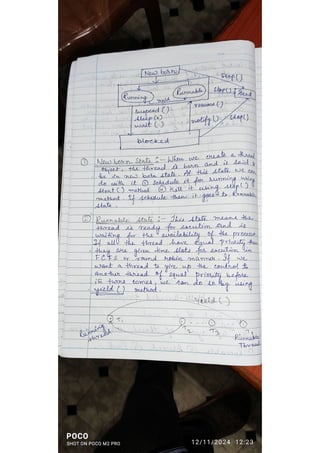 New born
stop()
Running
Runnable
stop()
Dead
yield
suspend()
sleep()
wait()
resume()
notify()
stop()
blocked
① New born State :- When we create a thread
object, the thread is born and is said to
be in new born state. At this state we can
do with it ① schedule it for running using
start() method ② Kill it using stop()
method. If schedule then it goes to Runnable
state.
② Runnable state :- This state means the
thread is ready for execution and is
waiting for the availability of the processor
If all the thread have equal Priority then
they are given time slots for execution in
FCFS or round robin manner. If we
want a thread to give up the control to
another thread of equal priority before
its turns comes, we can do so by using
yield() method.
yield()
T1
T2
T3
Running
thread
Runnable
Thread
POCO
SHOT ON POCO M2 PRO
12/11/2024 12:23